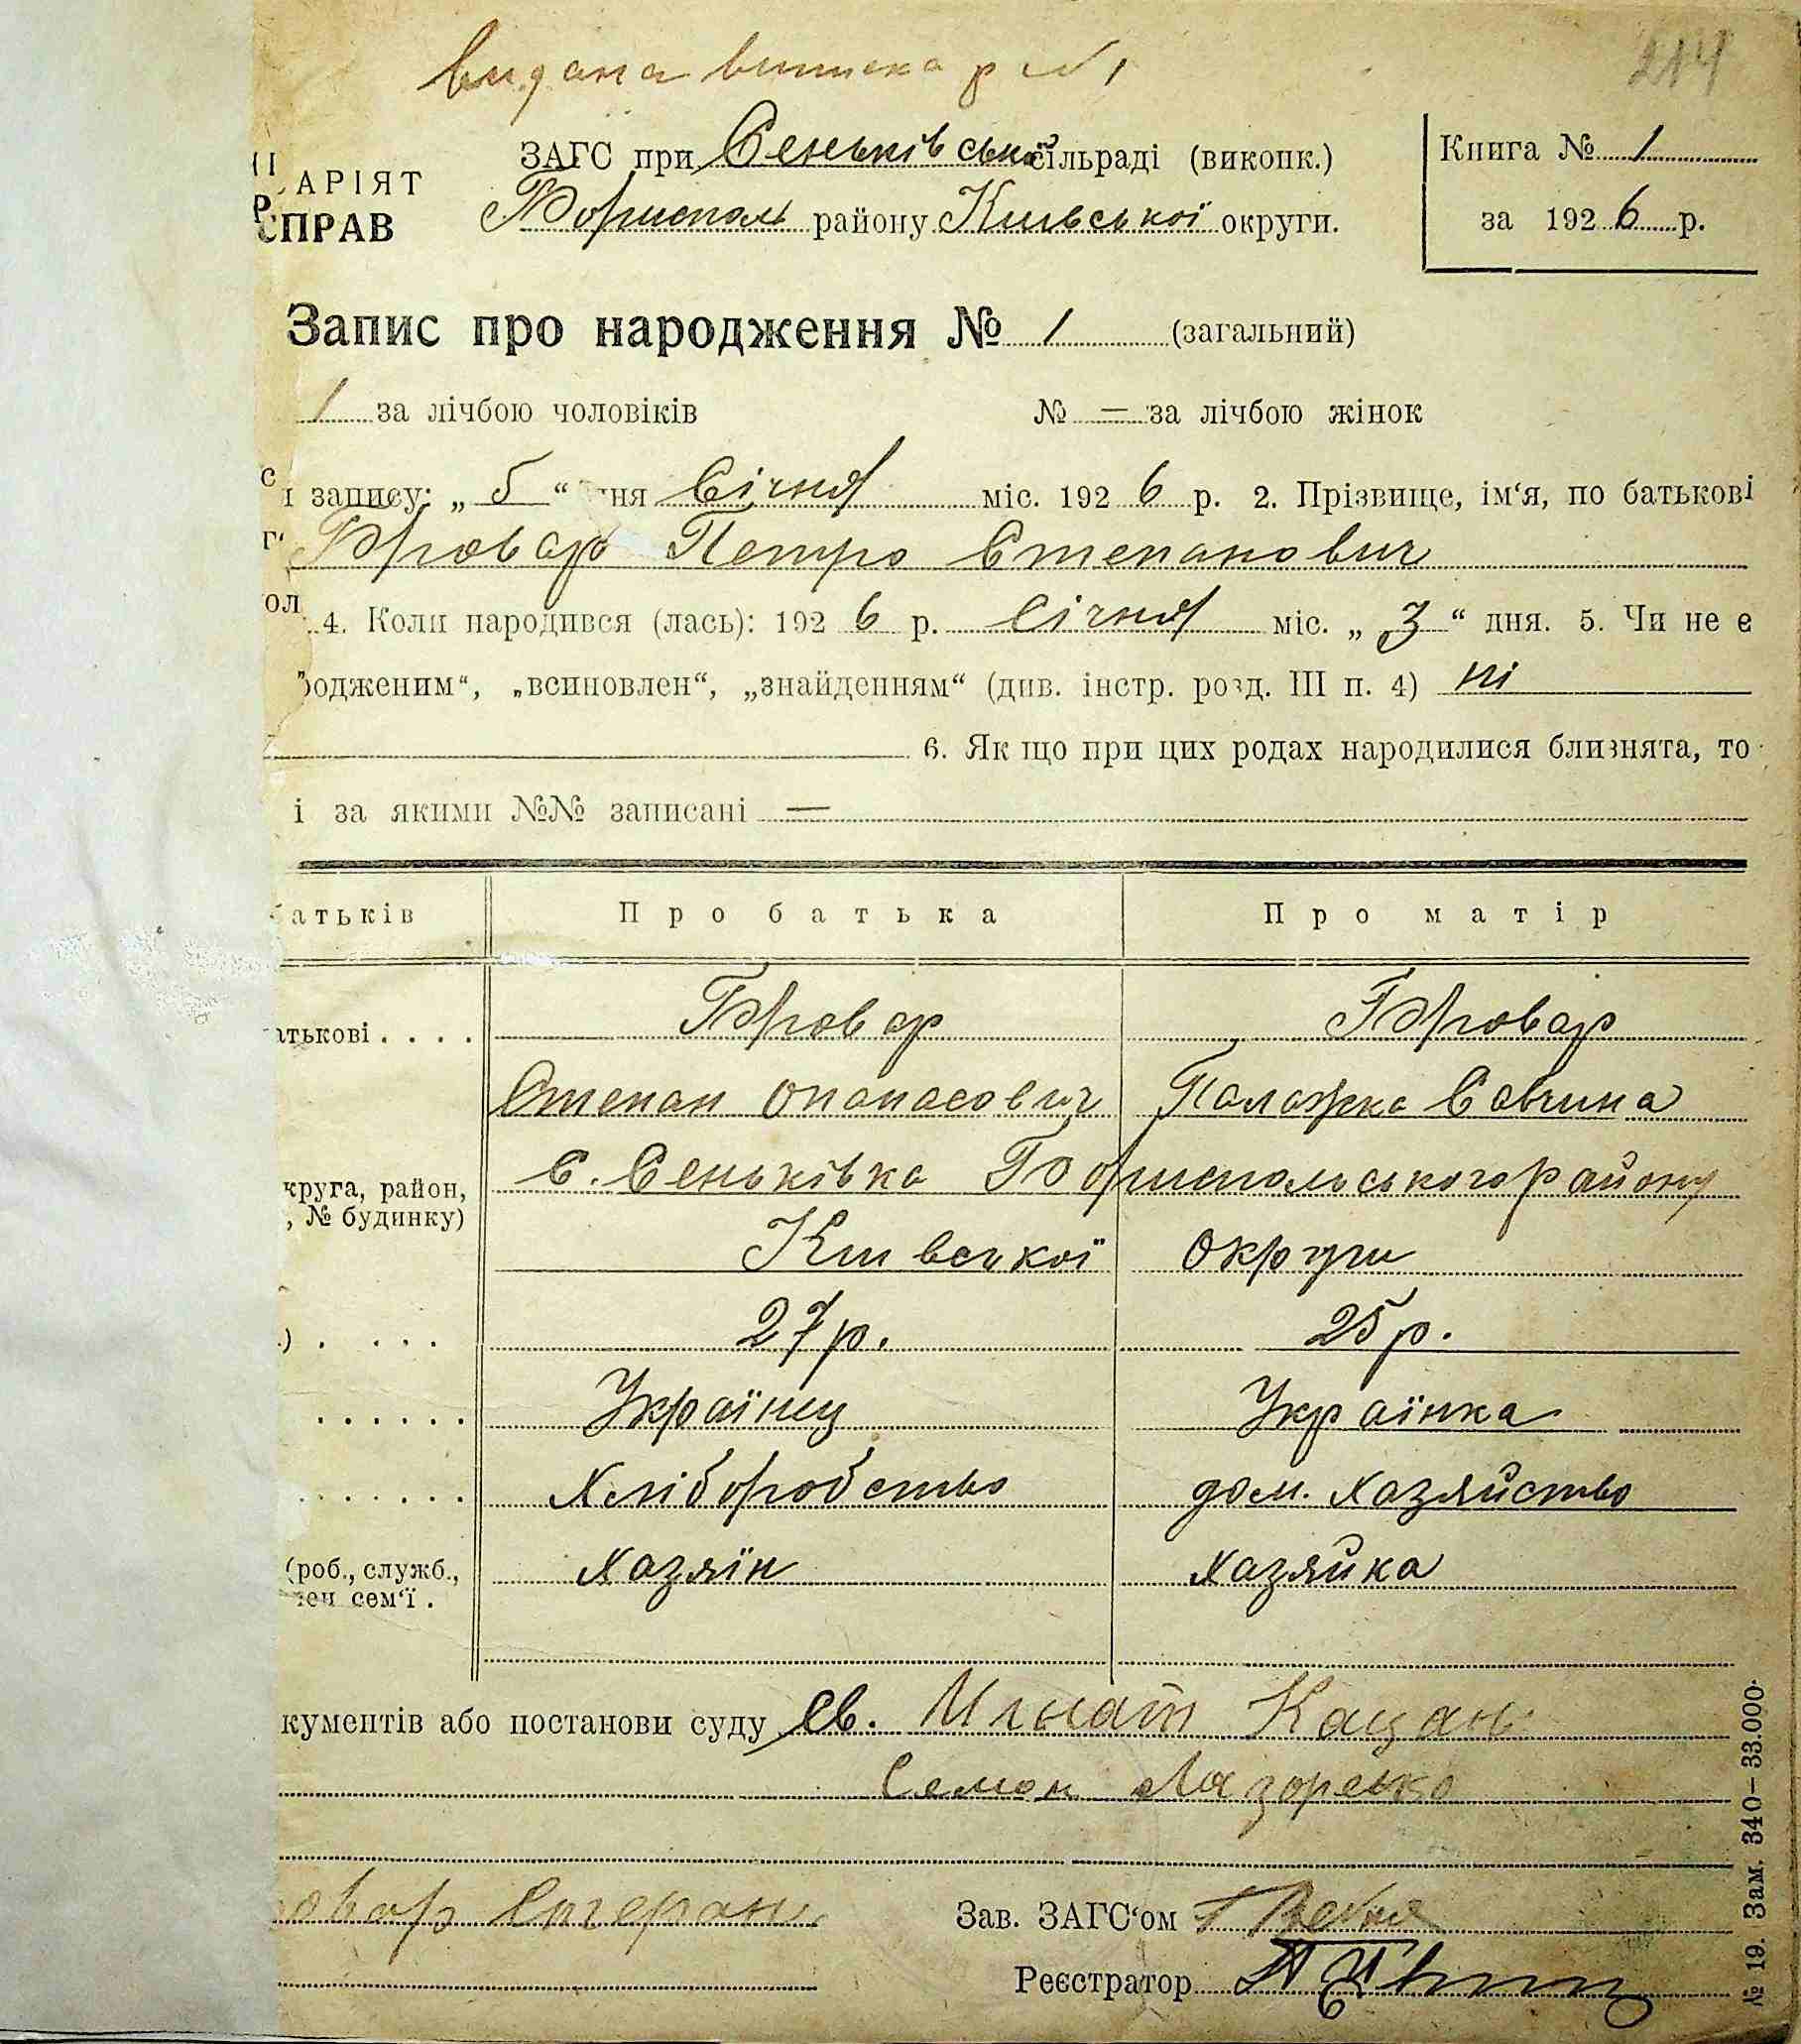 видана виписка р №1
214
АРІЯТ
СПРАВ
ЗАГС при Сеньківській сільраді (виконк.)
Бориспол району Київської округи.
Книга № 1
за 1926 р.
Запис про народження № 1 (загальний)
1 за лічбою чоловіків № — за лічбою жінок
запису: „ 5 “ дня Січня міс. 1926 р. 2. Прізвище, ім‘я, по батькові
Бровар Петро Степанович
4. Коли народився (лась): 1926 р. Січня міс. „ 3 “ дня. 5. Чи не є
родженим“, „всиновлен“, „знайденням“ (див. інстр. розд. III п. 4) ні
6. Як що при цих родах народилися близнята, то
і за якими №№ записані —
батьків Про батька Про матір
атькові . . . . Бровар Бровар
Степан Опанасович Палажка Савчина
круга, район, С. Сеньківка Бориспольського району
, № будинку)
Київської округи
.) . . . . 27 р. 25 р.
Українц Українка
Хліборобство дом. хазяйство
(роб., служб., Хазяїн Хазяйка
лен сем‘ї .
кументів або постанови суду Св. Игнат Кацан
Семон Лазоренко
овар Стефан
Зав. ЗАГС‘ом
Реєстратор
№ 19. Зам. 340–33.000.